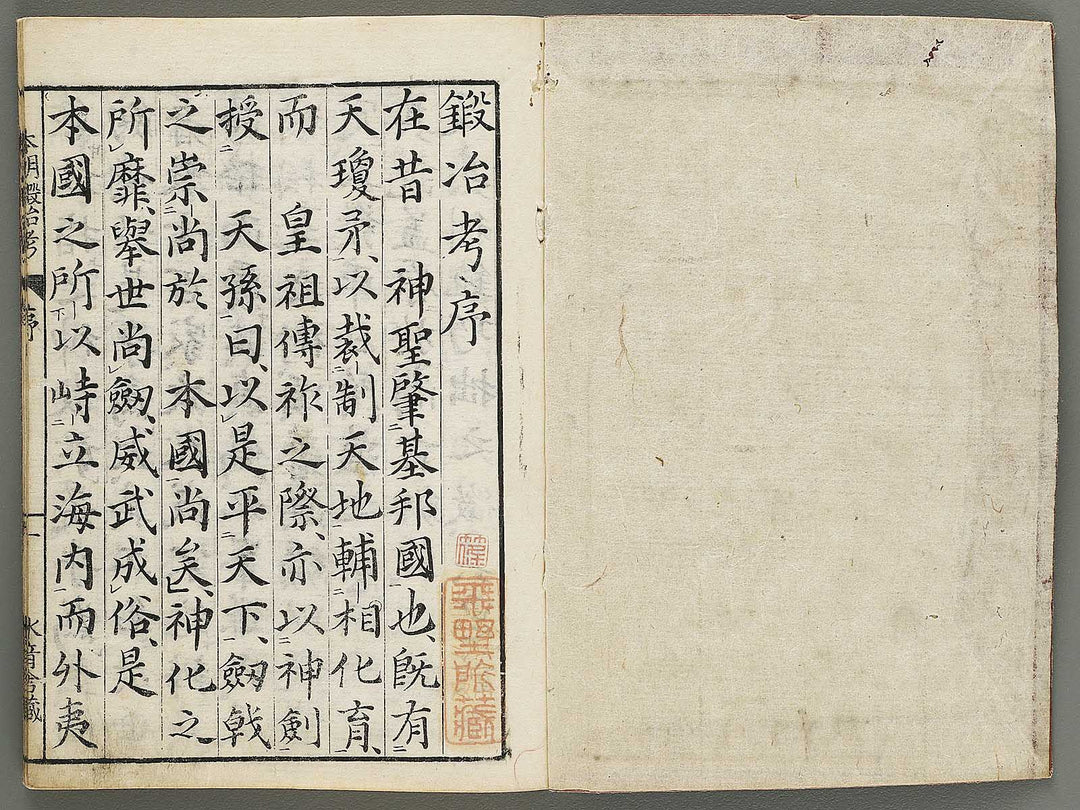 鍛冶考序
在昔　神聖肇基邦國也、既有
天瓊矛、以裁制天地輔相化育、
而　皇祖傳祚之際、亦以神劍
授　天孫曰、以是平天下、劔戟
之崇尚於　本國尚矣、神化之
所靡、舉世尚劔、威武成俗、是
本國之所以峙立海內而外夷
本朝鍛冶考
序
一
水音舍藏